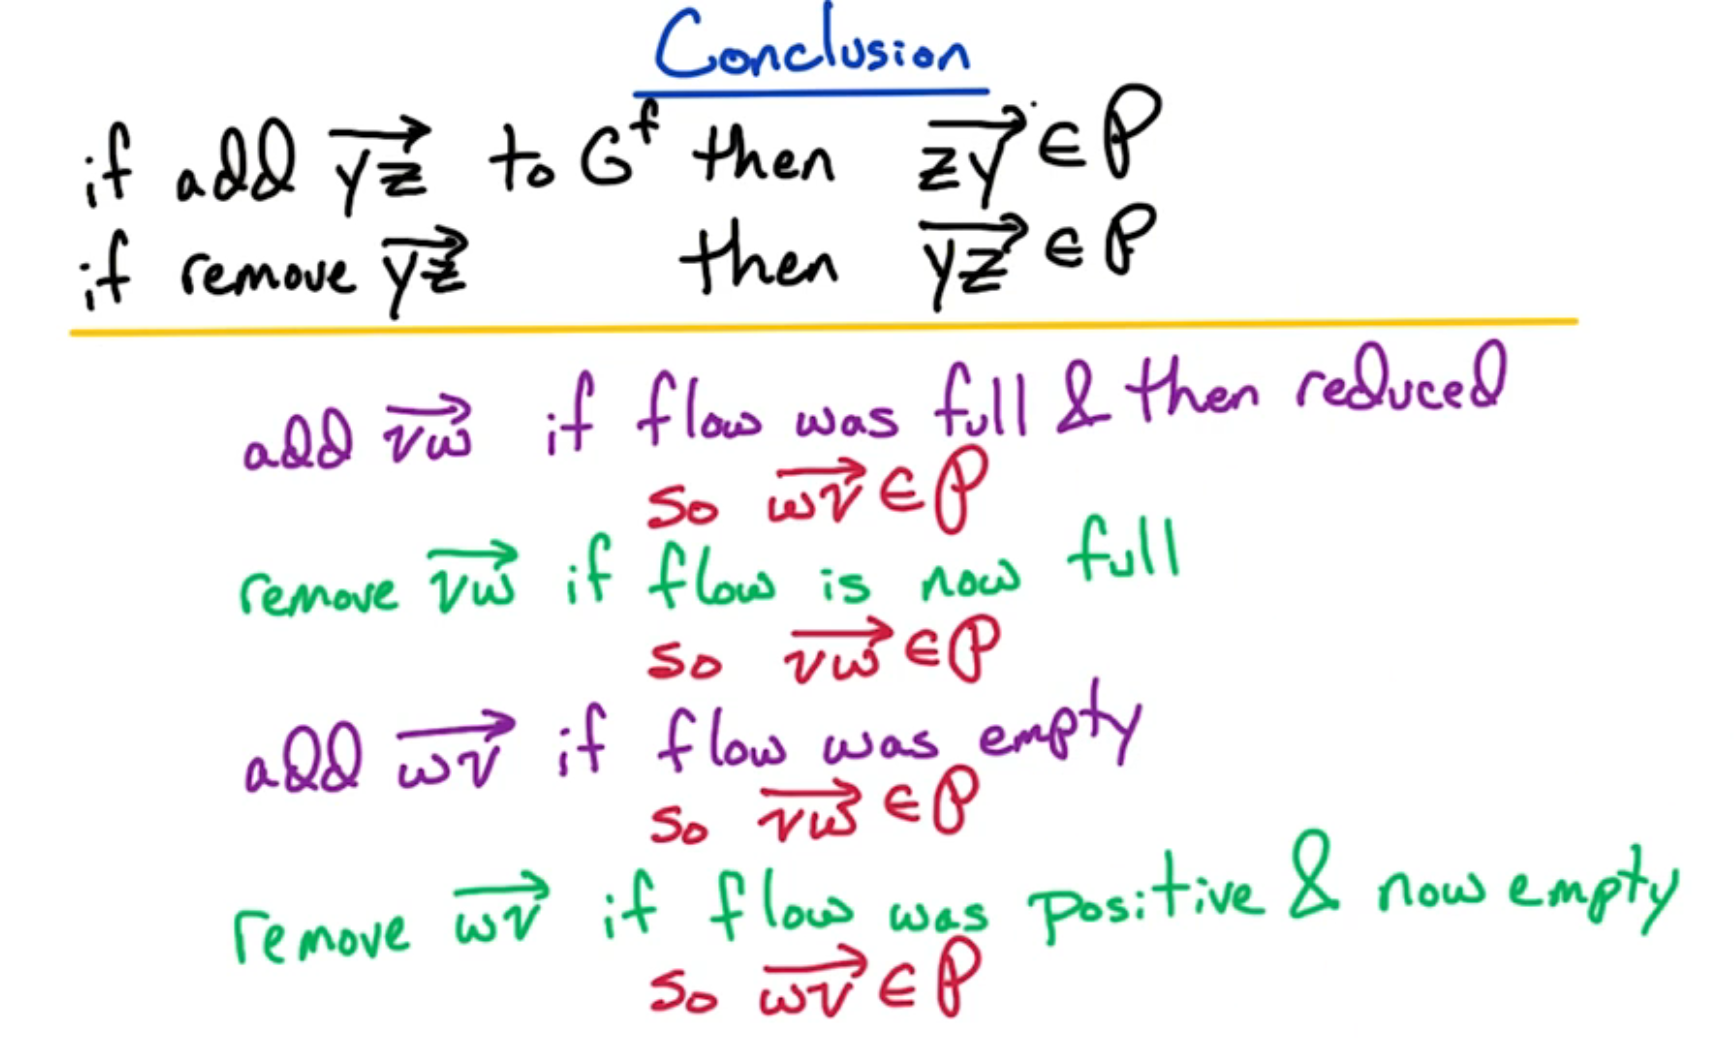 Conclusion
if add \overrightarrow{yz} to G^f then \overrightarrow{zy} ∈ P
if remove \overrightarrow{yz} then \overrightarrow{yz} ∈ P
add \overrightarrow{vw} if flow was full & then reduced
so \overrightarrow{wv} ∈ P
remove \overrightarrow{vw} if flow is now full
so \overrightarrow{vw} ∈ P
add \overrightarrow{wv} if flow was empty
so \overrightarrow{vw} ∈ P
remove \overrightarrow{wv} if flow was positive & now empty
so \overrightarrow{wv} ∈ P